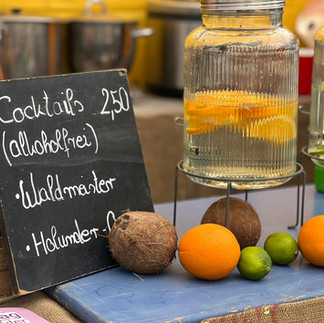 Cocktails 2,50
(alkoholfrei)
• Waldmeister
• Holunder-